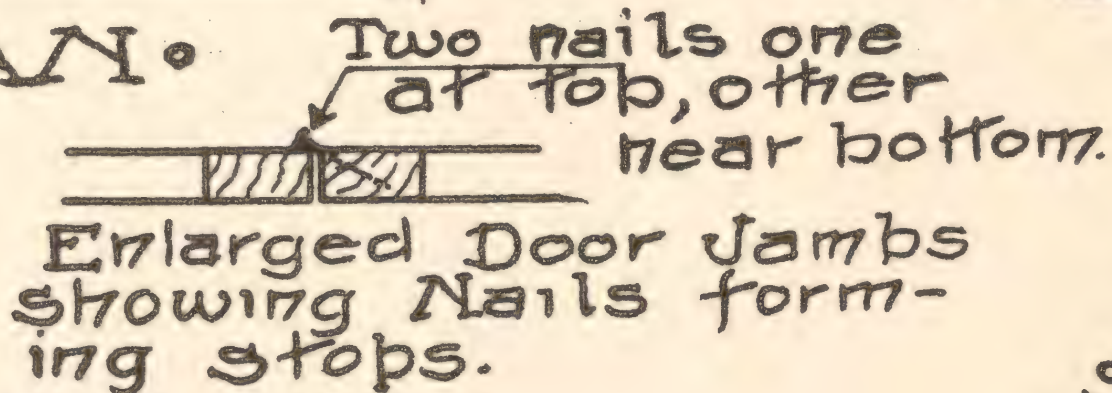 Two nails one
at top, other
near bottom.
Enlarged Door Jambs
showing Nails form-
ing stops.